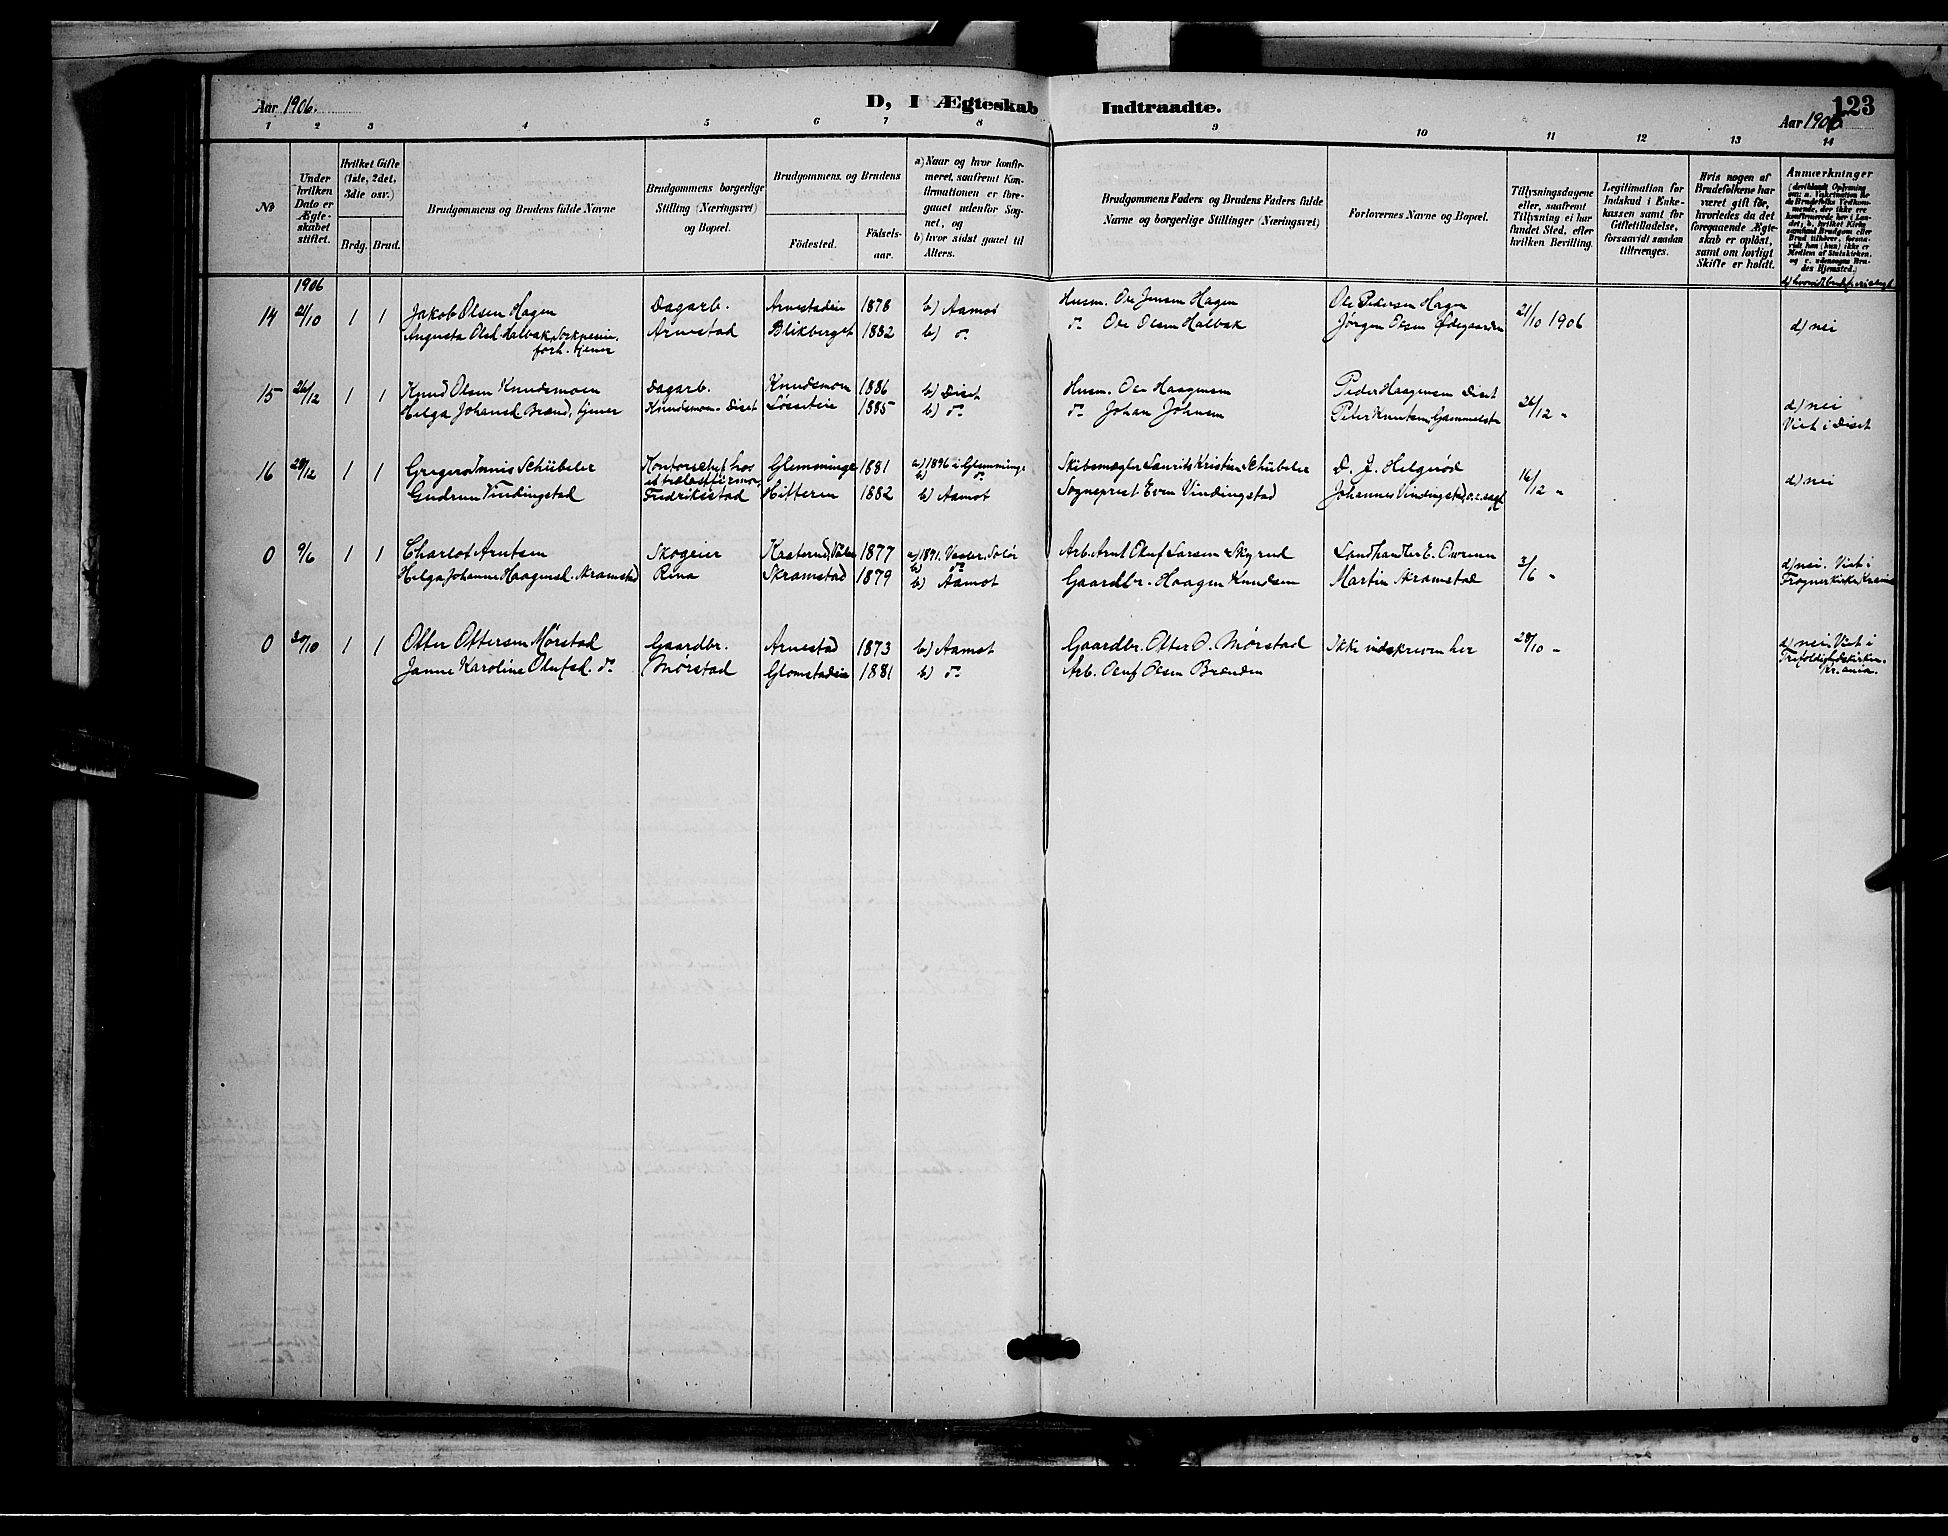 Aar 1906.
D, I Ægteskab Indtraadte.
123
Aar 1906
1 2 3 4 5 6 7 8 9 10 11 12 13 14
No
Under hvilken Dato er Ægteskabet stiftet.
Hvilket Gifte (1ste, 2det, 3die osv.)
Brdg. Brud.
Brudgommens og Brudens fulde Navne
Brudgommens borgerlige Stilling (Næringsvei) og Bopæl.
Brudgommens og Brudens
Fødested. Fødselsaar.
a) Naar og hvor konfirmeret, saafremt Konfirmationen er foregaaet udenfor Sognet, og
b) hvor sidst gaaet til Alters.
Brudgommens Faders og Brudens Faders fulde Navne og borgerlige Stillinger (Næringsvei)
Forlovernes Navne og Bopæl.
Tillysningsdagene eller, saafremt Tillysning ei har fundet Sted, efter hvilken Bevilling.
Legitimation for Indskud i Enkekassen samt for Giftetilladelse, forsaavidt saadan tiltrænges.
Hvis nogen af Brudefolkene har været gift før, hvorledes da det foregaaende Ægteskab er opløst, samt om lovligt Skifte er holdt.
Anmærkninger
1906
14 21/10 1 1 Jakob Olsen Hagen Dagarb. Arnestadeie 1878 b) Aamot Husm. Ole Jensen Hagen Ole Pedersen Hagen 21/10 1906
Augusta Olsd. Halbak, Arnestad Blikberget 1882 b) do do Ole Olsen Halbak Jørgen Olsen Ødegaarden d) nei
forh. tjener
15 26/12 1 1 Knud Olsen Knudsmoen Dagarb. Knudsmoen 1886 b) Diset Husm. Ole Haagensen Peder Haagensen Diset
Helga Johansd. Brænd, tjener Knudsmoen Diset Løsseteie 1885 b) do do Johan Johnsen Peter Knutsen, Gammelstu 26/12 " d) nei
Viet i Diset
16 28/12 1 1 Gregers Innis Schübeler Kontorchef hos Glemminge 1881 a) 1896 i Glemminge Skibsmægler Laurits Kristian Schübeler D. J. Helgerød
et trælastfirma, b) do
Gudrun Vindingstad Fredrikstad Hitteren 1882 b) Aamot Sogneprest Even Vindingstad Johannes Vindingstad, o.r.sagf. 16/12 " d) nei
0 9/6 1 1 Charlot Arntsen Skogeier 1877 a) 1891. Vaaler. Solør Arb. Arnt Oluf Larsen Skyrud Landhandler E.
b) do
Helga Johanne Haagensd. Skramstad Rena Skramstad 1879 b) Aamot Gaardbr. Haagen Knudsen Martin Skramstad 3/6 " d) nei. Viet i
Frognerkirke Krania
0 30/10 1 1 Otter Ottersen Mørstad Gaardbr. Arnestad 1873 b) Aamot Gaardbr. Otter O. Mørstad Ikke indskreven her 28/10 " d) nei. Viet i
Janne Karoline Olufsd. do Mørstad Glomstadeie 1881 b) do Arb. Oluf Olsen Brænden Trefoldighedskirken
Kr.ania.